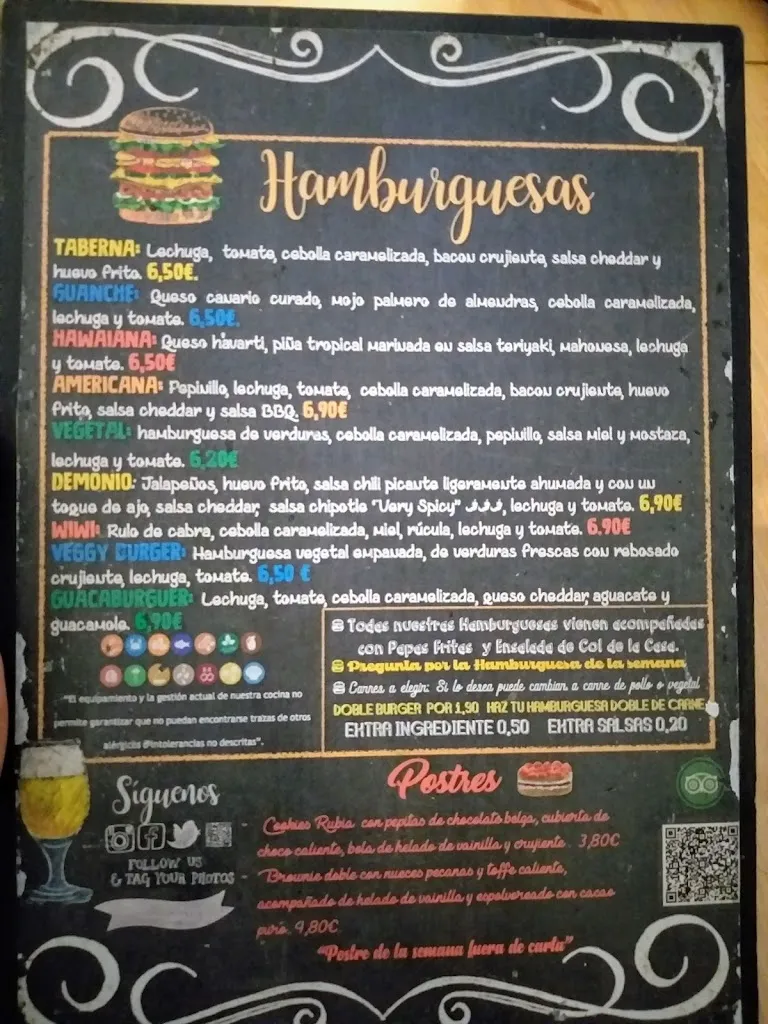 Hamburguesas
TABERNA: Lechuga, tomate, cebolla caramelizada, bacon crujiente, salsa cheddar y
huevo frito. 6,50€.
GUANCHE: Queso canario curado, mojo palmero de almendras, cebolla caramelizada,
lechuga y tomate. 6,50€.
HAWAIANA: Queso havarti, piña tropical marinada en salsa teriyaki, mahonesa, lechuga
y tomate. 6,50€
AMERICANA: Pepinillo, lechuga, tomate, cebolla caramelizada, bacon crujiente, huevo
frito, salsa cheddar y salsa BBQ. 6,90€
VEGETAL: hamburguesa de verduras, cebolla caramelizada, pepinillo, salsa miel y mostaza,
lechuga y tomate. 6,20€
DEMONIO: Jalapeños, huevo frito, salsa chili picante ligeramente ahumada y con un
toque de ajo, salsa cheddar, salsa chipotle "Very Spicy", lechuga y tomate. 6,90€
WIWI: Rulo de cabra, cebolla caramelizada, miel, rúcula, lechuga y tomate. 6.90€
VEGGY BURGER: Hamburguesa vegetal empanada, de verduras frescas con rebosado
crujiente, lechuga, tomate. 6,50 €
GUACABURGUER: Lechuga, tomate, cebolla caramelizada, queso cheddar, aguacate y
guacamole. 6,90€
Todas nuestras Hamburguesas vienen acompañadas
con Papas Fritas y Ensalada de Col de la Casa.
Pregunta por la Hamburguesa de la semana
Carnes a elegir: Si lo desea puede cambiar a carne de pollo o vegetal
DOBLE BURGER POR 1,90 HAZ TU HAMBURGUESA DOBLE DE CARNE
EXTRA INGREDIENTE 0,50 EXTRA SALSAS 0,20
"El equipamiento y la gestión actual de nuestra cocina no
permite garantizar que no puedan encontrarse trazas de otros
alérgicos @intolerancias no descritas".
Síguenos
FOLLOW US
& TAG YOUR PHOTOS
Postres
Cookies Rubia con pepitas de chocolate belga, cubierta de
choco caliente, bola de helado de vainilla y crujiente. 3,80€
- Brownie doble con nueces pecanas y toffe caliente,
acompañado de helado de vainilla y espolvoreado con cacao
puro. 4,80€
"Postre de la semana fuera de carta"